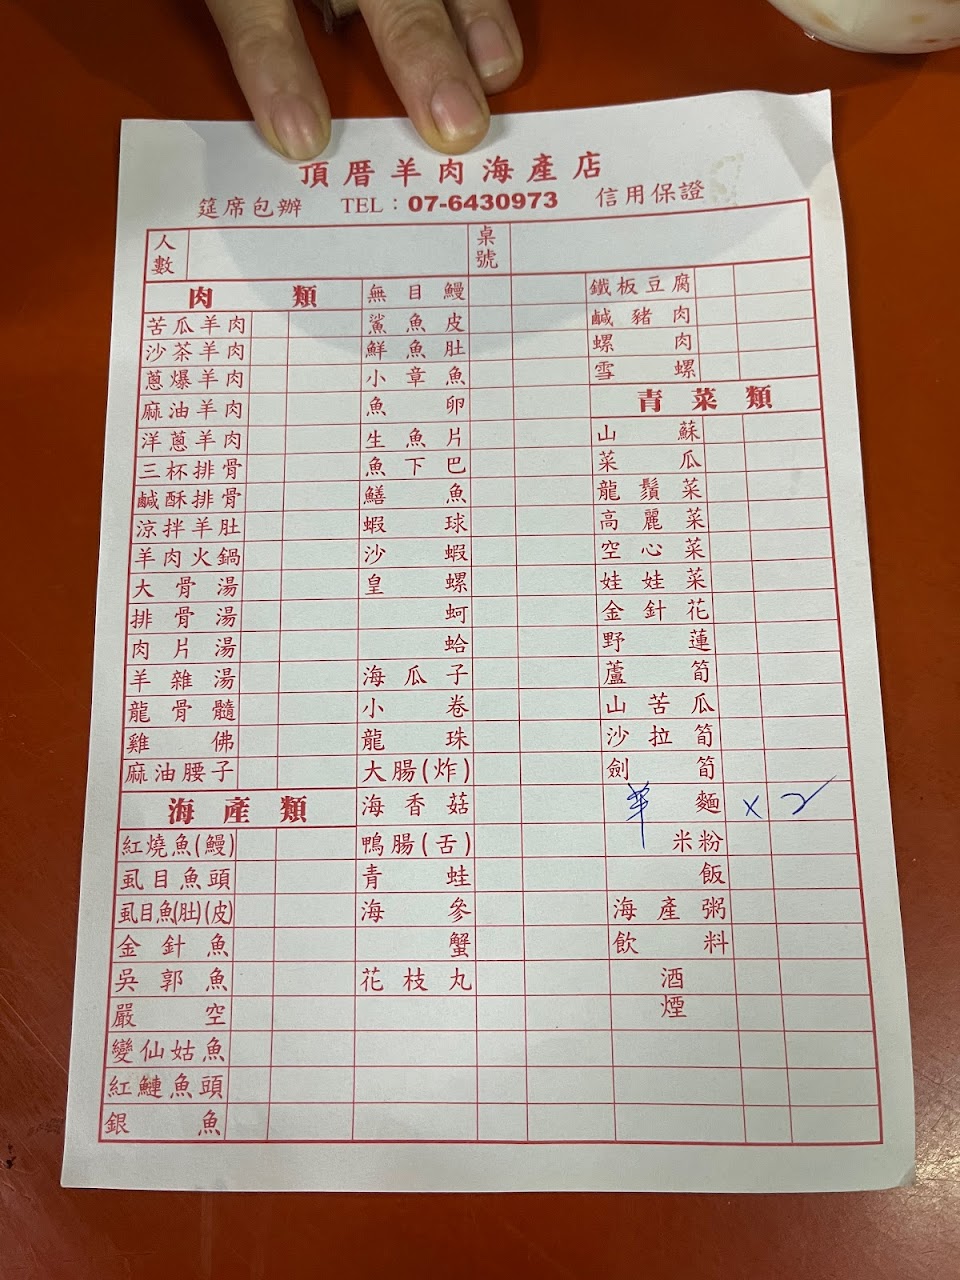 頂厝羊肉海產店
筵席包辦 TEL：07-6430973 信用保證
人數 桌號
肉類
苦瓜羊肉
沙茶羊肉
蔥爆羊肉
麻油羊肉
洋蔥羊肉
三杯排骨
鹹酥排骨
涼拌羊肚
羊肉火鍋
大骨湯
排骨湯
肉片湯
羊雜湯
龍骨髓
雞佛
麻油腰子
海產類
紅燒魚(鰻)
虱目魚頭
虱目魚(肚)(皮)
金針魚
吳郭魚
嚴空
變仙姑魚
紅鰱魚頭
銀魚
無目鰻
鯊魚皮
鮮魚肚
小章魚
魚卵
生魚片
魚下巴
鱔魚
蝦球
沙蝦
皇螺
蚵
蛤
海瓜子
小卷
龍珠
大腸(炸)
海香菇
鴨腸(舌)
青蛙
海參
蟹
花枝丸
鐵板豆腐
鹹豬肉
螺肉
雪螺
青菜類
山蘇
菜瓜
龍鬚菜
高麗菜
空心菜
娃娃菜
金針花
野蓮
蘆筍
山苦瓜
沙拉筍
劍筍
羊麵 x 2
米粉
飯
海產粥
飲料
酒
煙